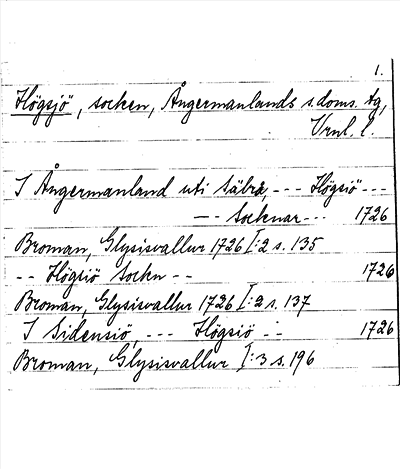 1.
Högsjö, socken, Ångermanlands s. doms. tg,
Vrnl. l.
I Ångermanland uti Säbrå, --- Högsiö ---
-- Socknar --- 1726
Broman, Glysisvallur 1726 I:2 s. 135
-- Högsiö Sockn -- 1726
Broman, Glysisvallur 1726 I:2 s. 137
I Sidensiö, --- Högsiö -- 1726
Broman, Glysisvallur I:3 s. 196